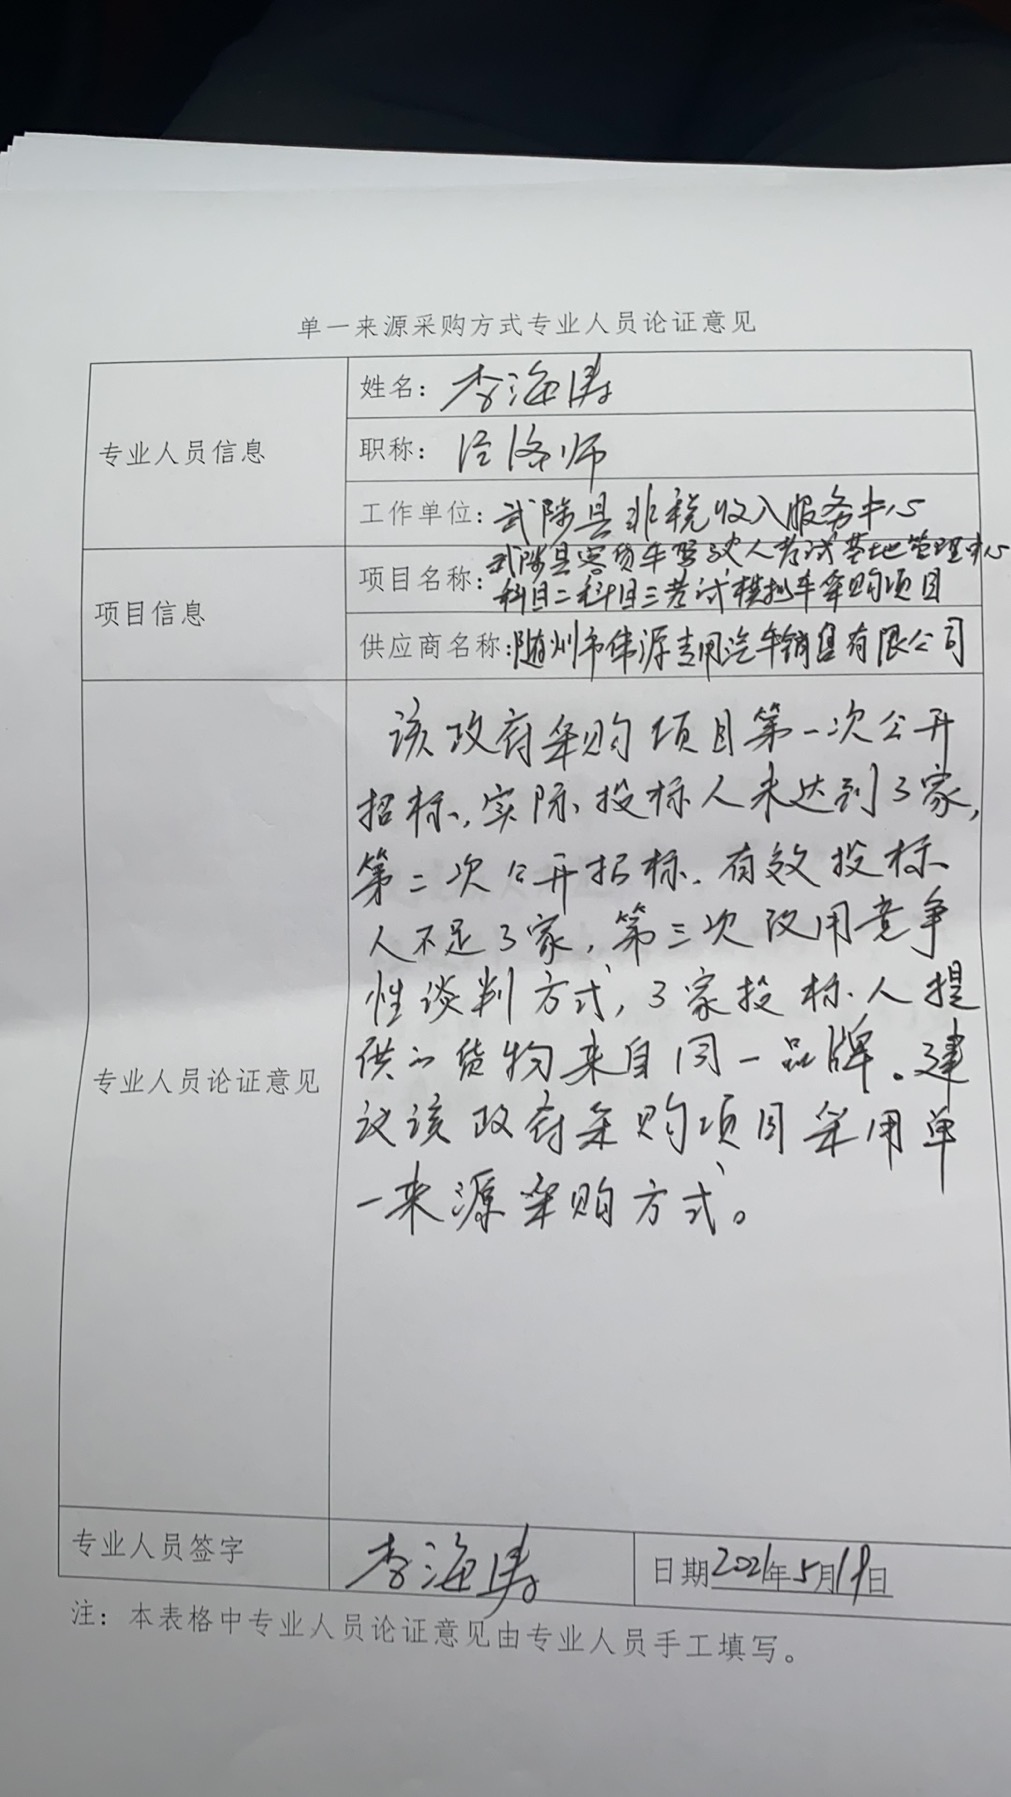 单一来源采购方式专业人员论证意见
专业人员信息
姓名：李海涛
职称：经济师
工作单位：武陟县非税收入服务中心
项目信息
项目名称：武陟县客货车驾驶人考试基地管理中心
科目二科目三考试模拟车采购项目
供应商名称：随州市伟源专用汽车销售有限公司
专业人员论证意见
该政府采购项目第一次公开
招标，实际投标人未达到3家，
第二次公开招标，有效投标
人不足3家，第三次改用竞争
性谈判方式，3家投标人提
供的货物来自同一品牌。建
议该政府采购项目采用单
一来源采购方式。
专业人员签字
李海涛
日期2021年5月19日
注：本表格中专业人员论证意见由专业人员手工填写。